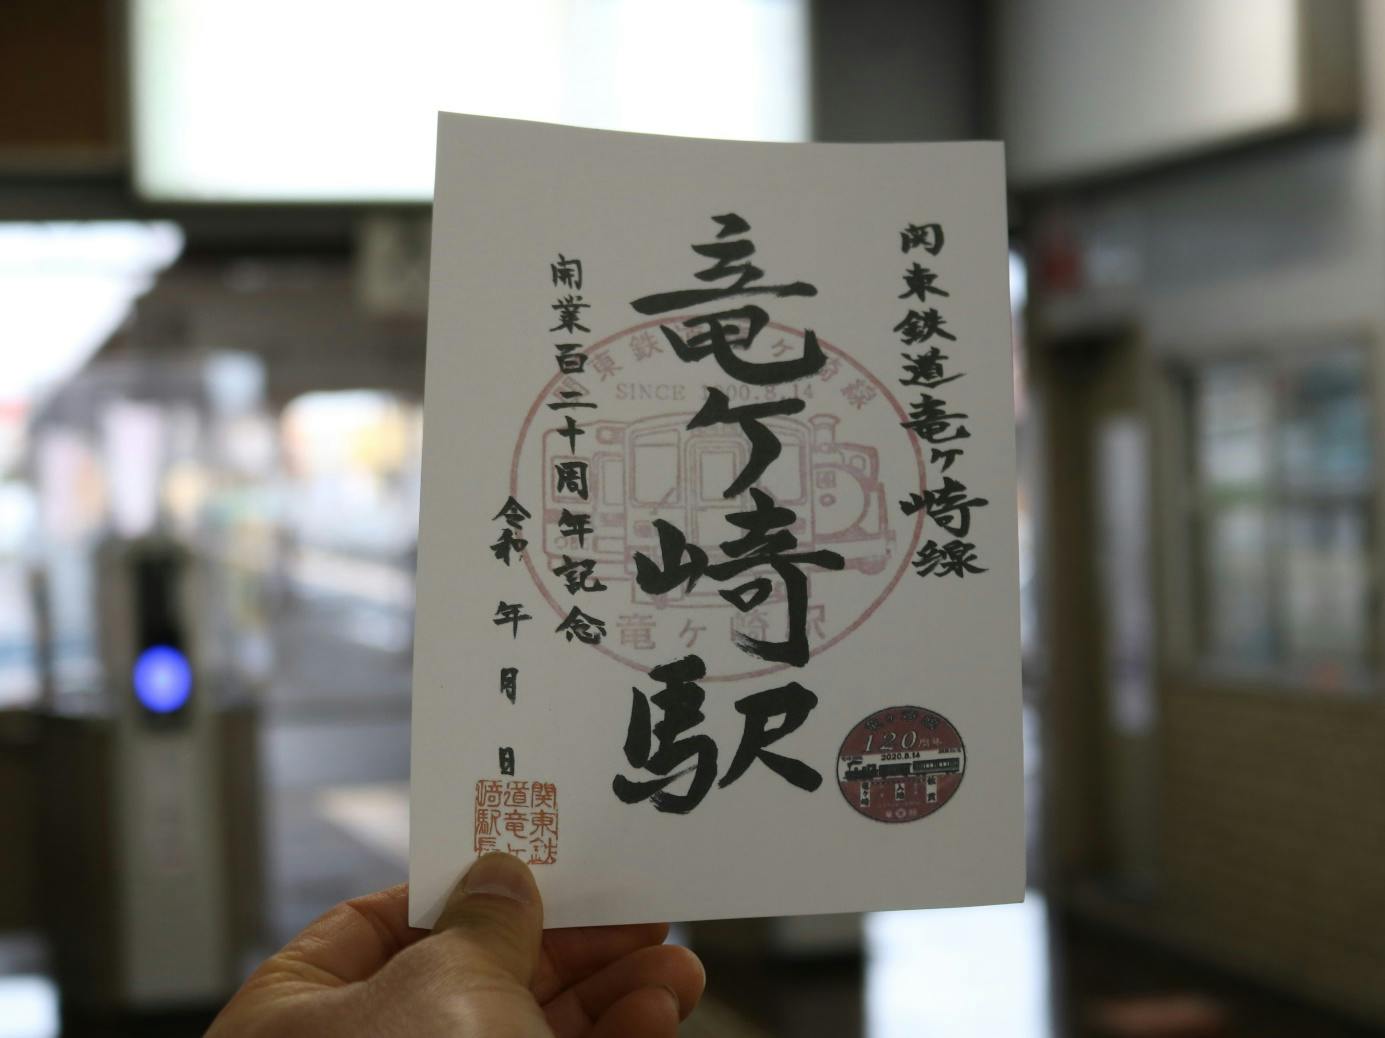 関東鉄道竜ケ崎線
竜ケ崎駅
開業百二十周年記念
令和 年 月 日
SINCE 1900.8.14
竜ヶ崎駅
120周年
2020.8.14
竜ヶ崎
入地
佐貫
関東鉄
道竜ヶ
崎駅長